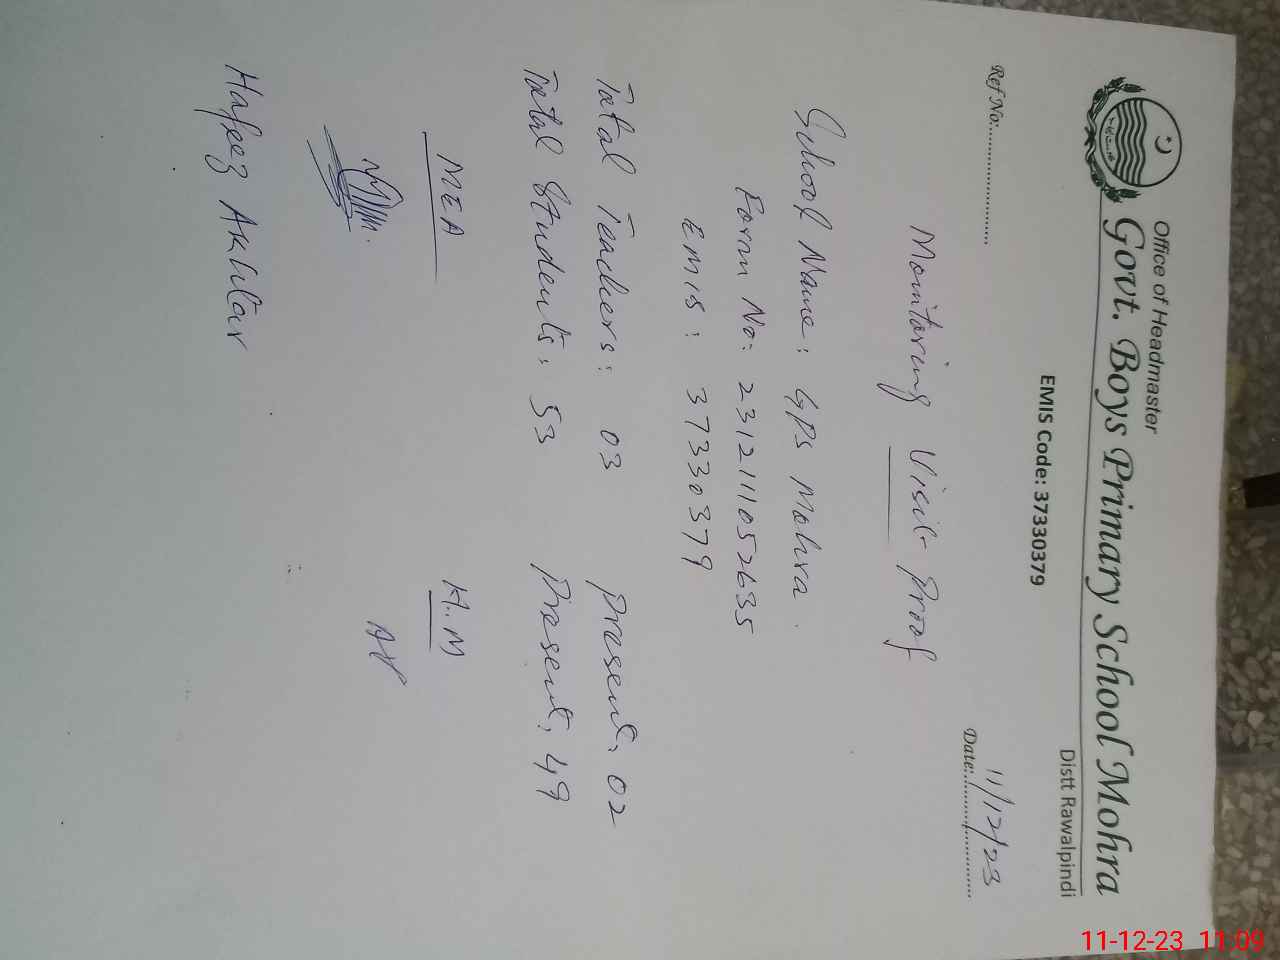 Office of Headmaster
Govt. Boys Primary School Mohra
Distt Rawalpindi
EMIS Code: 37330379
Ref No:........................
Date:........................ 11/12/23
Monitoring Visit Proof
School Name: GPS Mohra
Form No: 231211052635
EMIS: 37330379
Total Teachers: 03 Present: 02
Total Students: 53 Present: 49
MEA H.M
Hafeez Akhtar
11-12-23 11:09